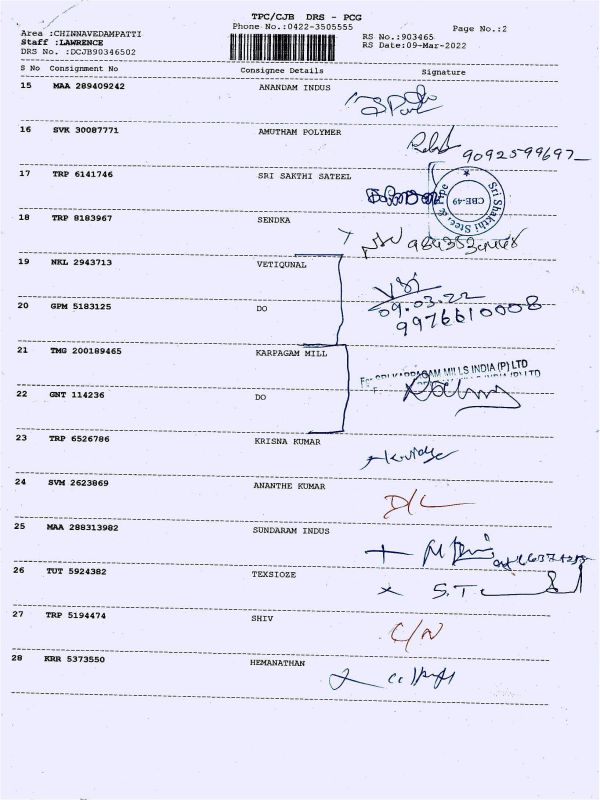 TPC/CJB DRS - PCG
Phone No.:0422-3505555
Page No.:2
Area :CHINNAVEDAMPATTI
Staff :LAWRENCE
DRS No. :DCJB90346502
RS No.:903465
RS Date:09-Mar-2022
S No Consignment No Consignee Details Signature
15 MAA 289409242 ANANDAM INDUS
16 SVK 30087771 AMUTHAM POLYMER
9092599697
17 TRP 6141746 SRI SAKTHI SATEEL
Sri Shakthi Stee
CBE-49
18 TRP 8183967 SENDKA
19 NKL 2943713 VETIQUNAL
09.03.22
20 GPM 5183125 DO
9976610008
21 TMG 200189465 KARPAGAM MILL
For SRI KARPAGAM MILLS INDIA (P) LTD
22 GNT 114236 DO
23 TRP 6526786 KRISNA KUMAR
24 SVM 2623869 ANANTHE KUMAR
D/L
25 MAA 288313982 SUNDARAM INDUS
26 TUT 5924382 TEXSIOZE
27 TRP 5194474 SHIV
C/N
28 KRR 5373550 HEMANATHAN